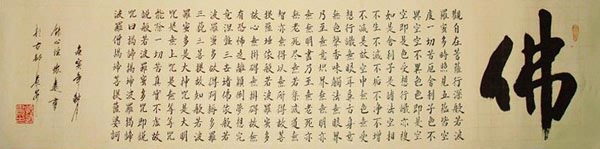 佛
觀自在菩薩行深般若波
羅蜜多時照見五蘊皆空
度一切苦厄舍利子色不
異空空不異色色即是空
空即是色受想行識亦復
如是舍利子是諸法空相
不生不滅不垢不淨不增
不減是故空中無色無受
想行識無眼耳鼻舌身意
無色聲香味觸法無眼界
乃至無意識界無無明亦
無無明盡乃至無老死亦
無老死盡無苦集滅道無
智亦無得以無所得故菩
提薩埵依般若波羅蜜多
故心無罣礙無罣礙故無
有恐怖遠離顛倒夢想究
竟涅槃三世諸佛依般若
波羅蜜多故得阿耨多羅
三藐三菩提故知般若波
羅蜜多是大神咒是大明
咒是無上咒是無等等咒
能除一切苦真實不虛故
說般若波羅蜜多咒即說
咒曰揭諦揭諦波羅揭諦
波羅僧揭諦菩提薩婆訶